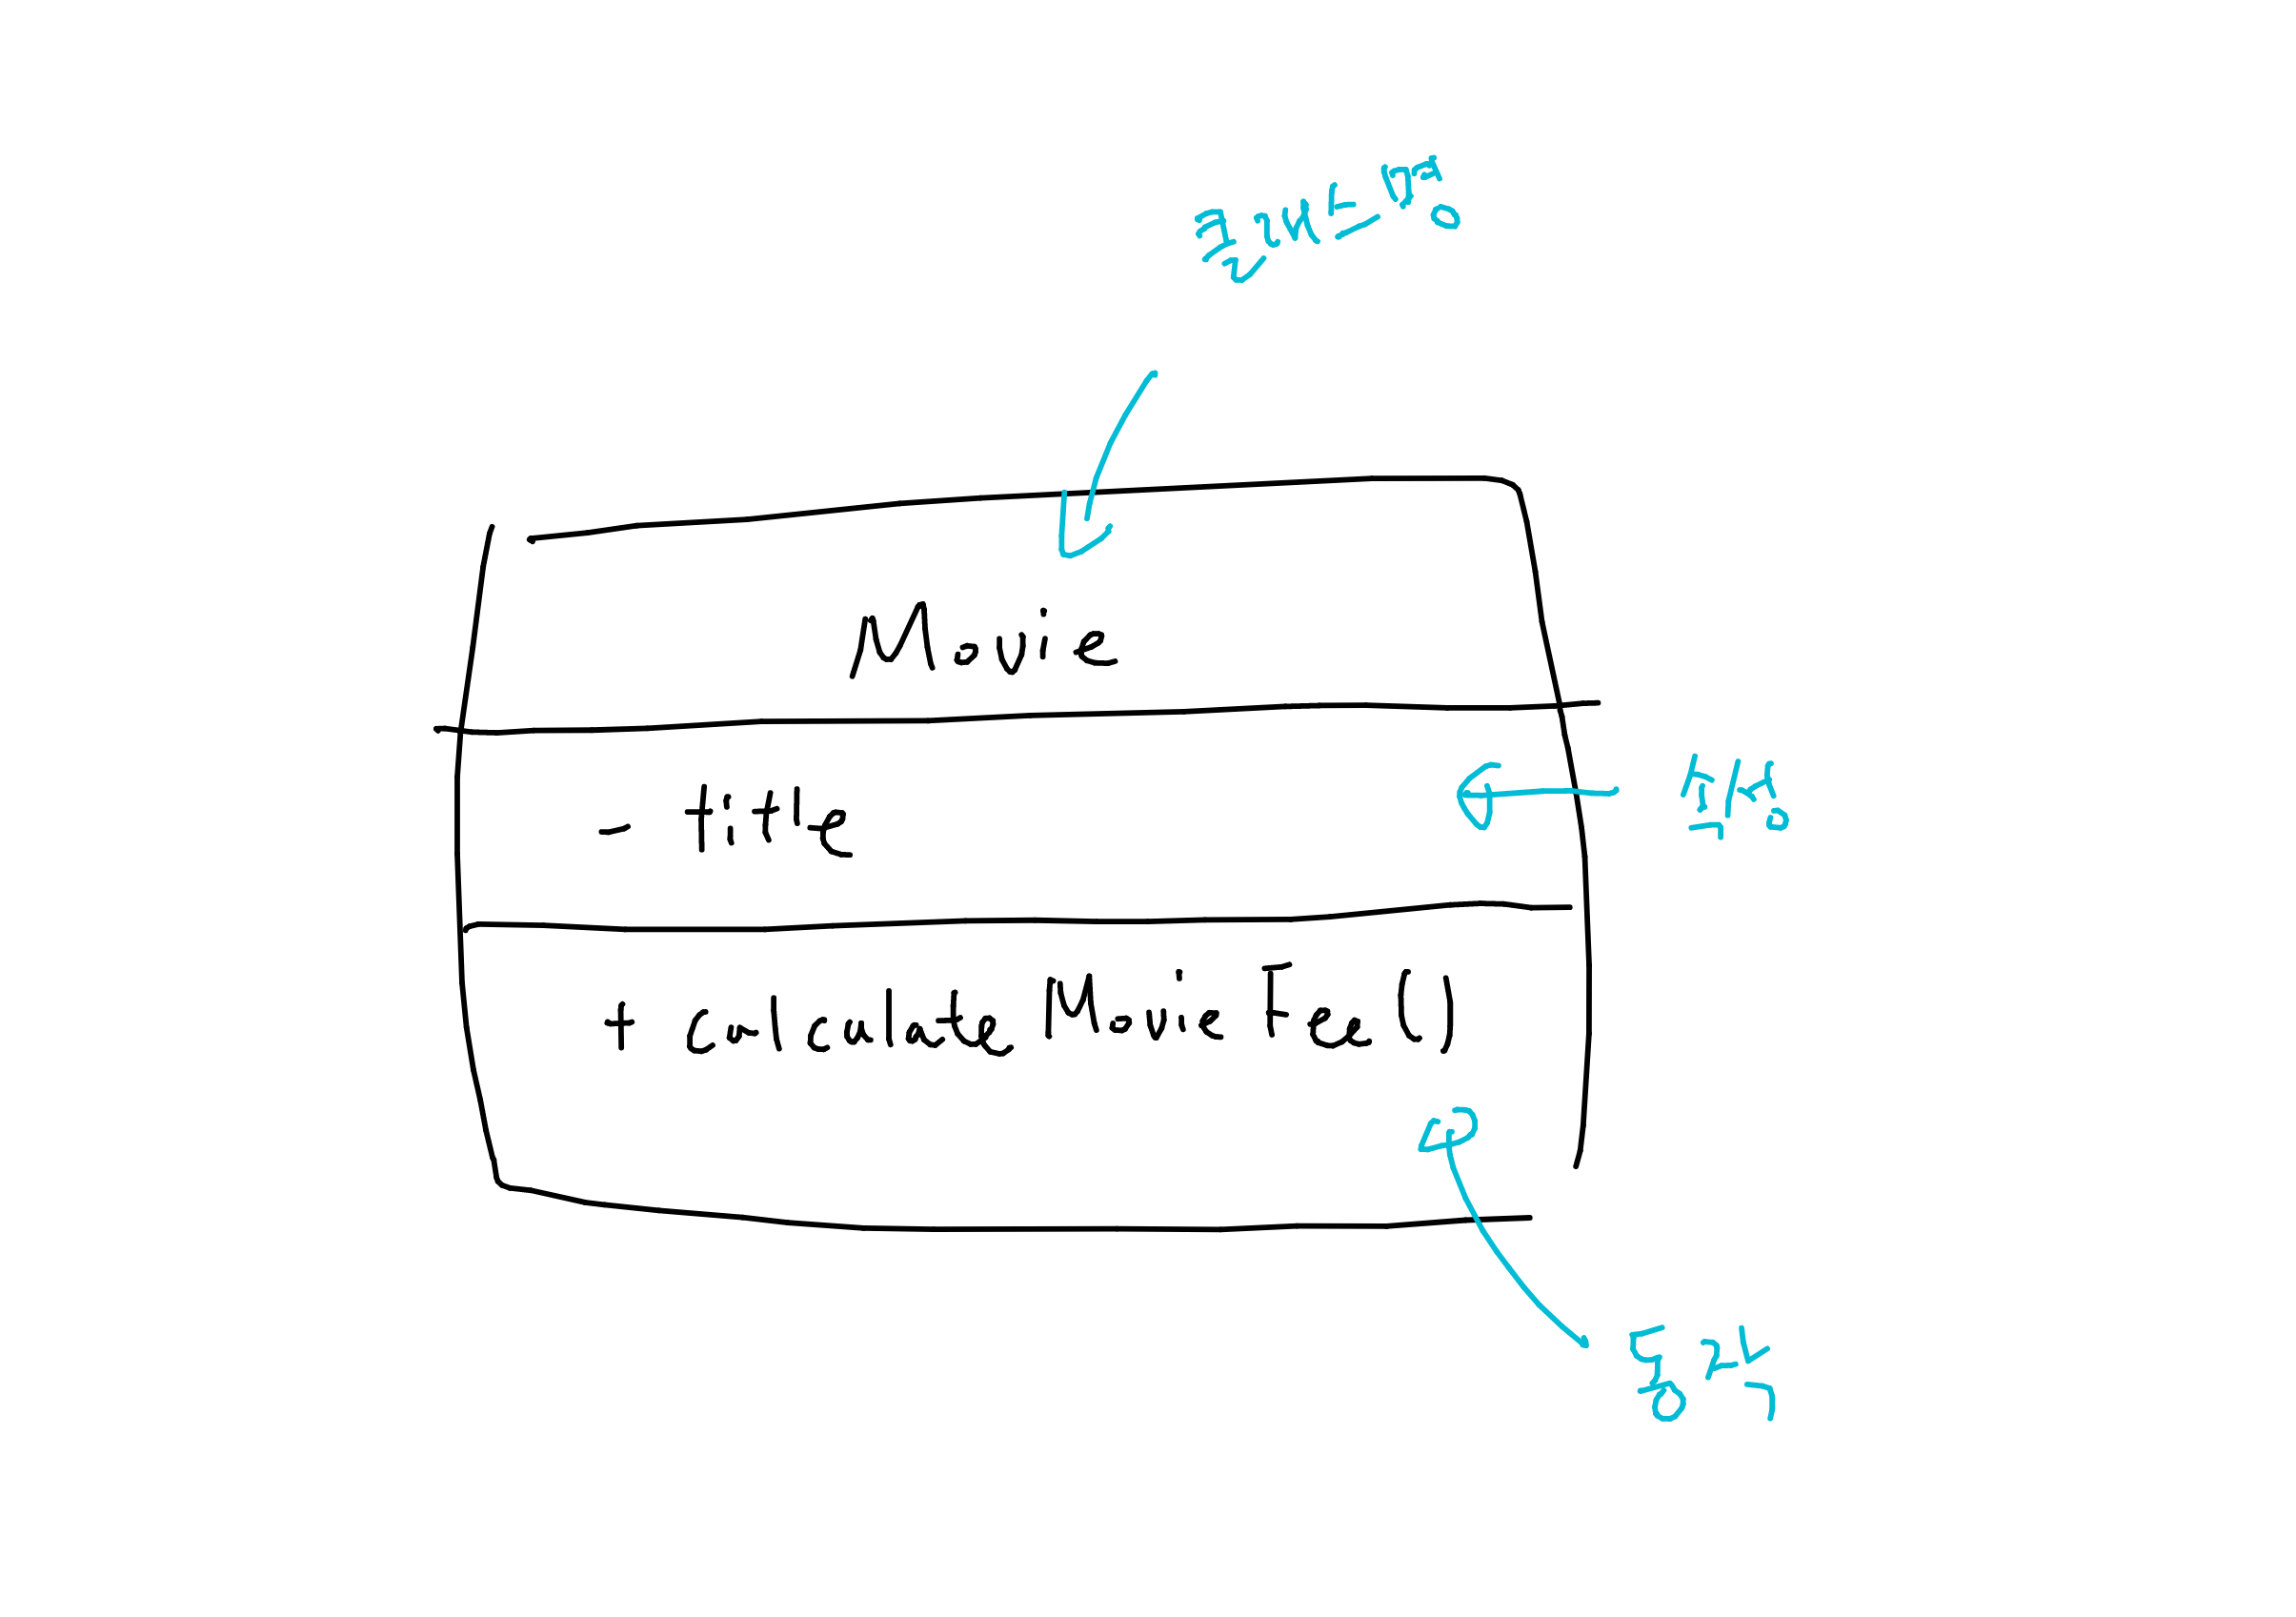 클래스명
Movie
- title
속성
+ calculateMovieFee()
동작